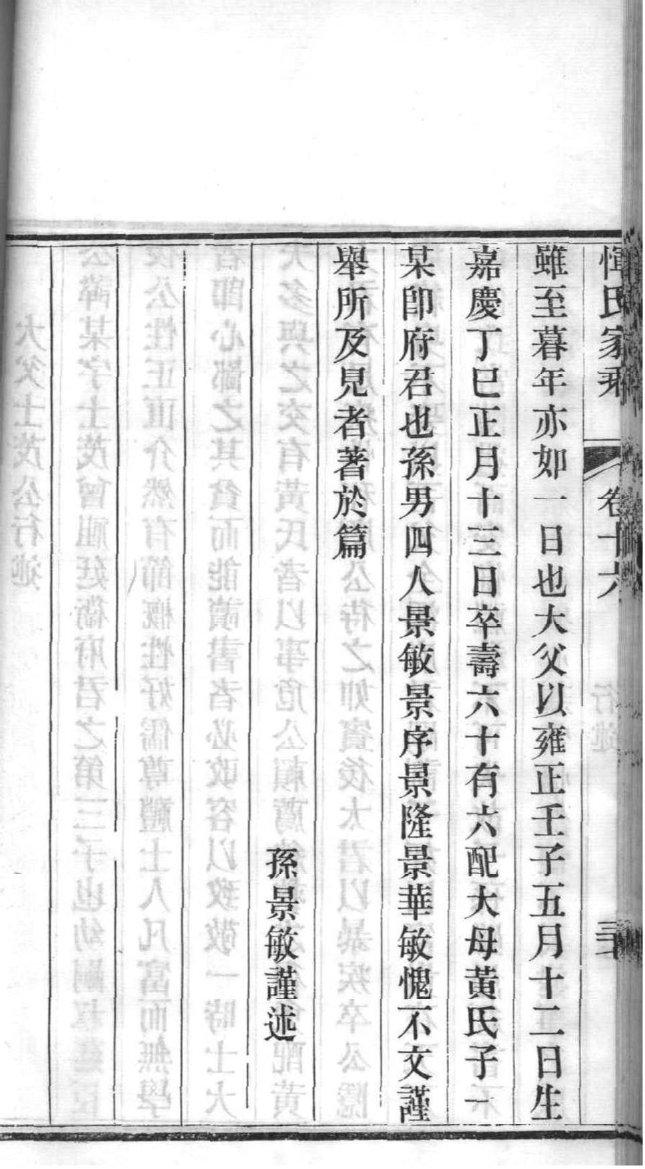 惲氏家乘 卷十六
雖至暮年亦如一日也大父以雍正壬子五月十二日生
嘉慶丁巳正月十三日卒壽六十有六配大母黃氏子一
某卽府君也孫男四人景敏景序景隆景華敏愧不文謹
舉所及見者著於篇
孫景敏謹述